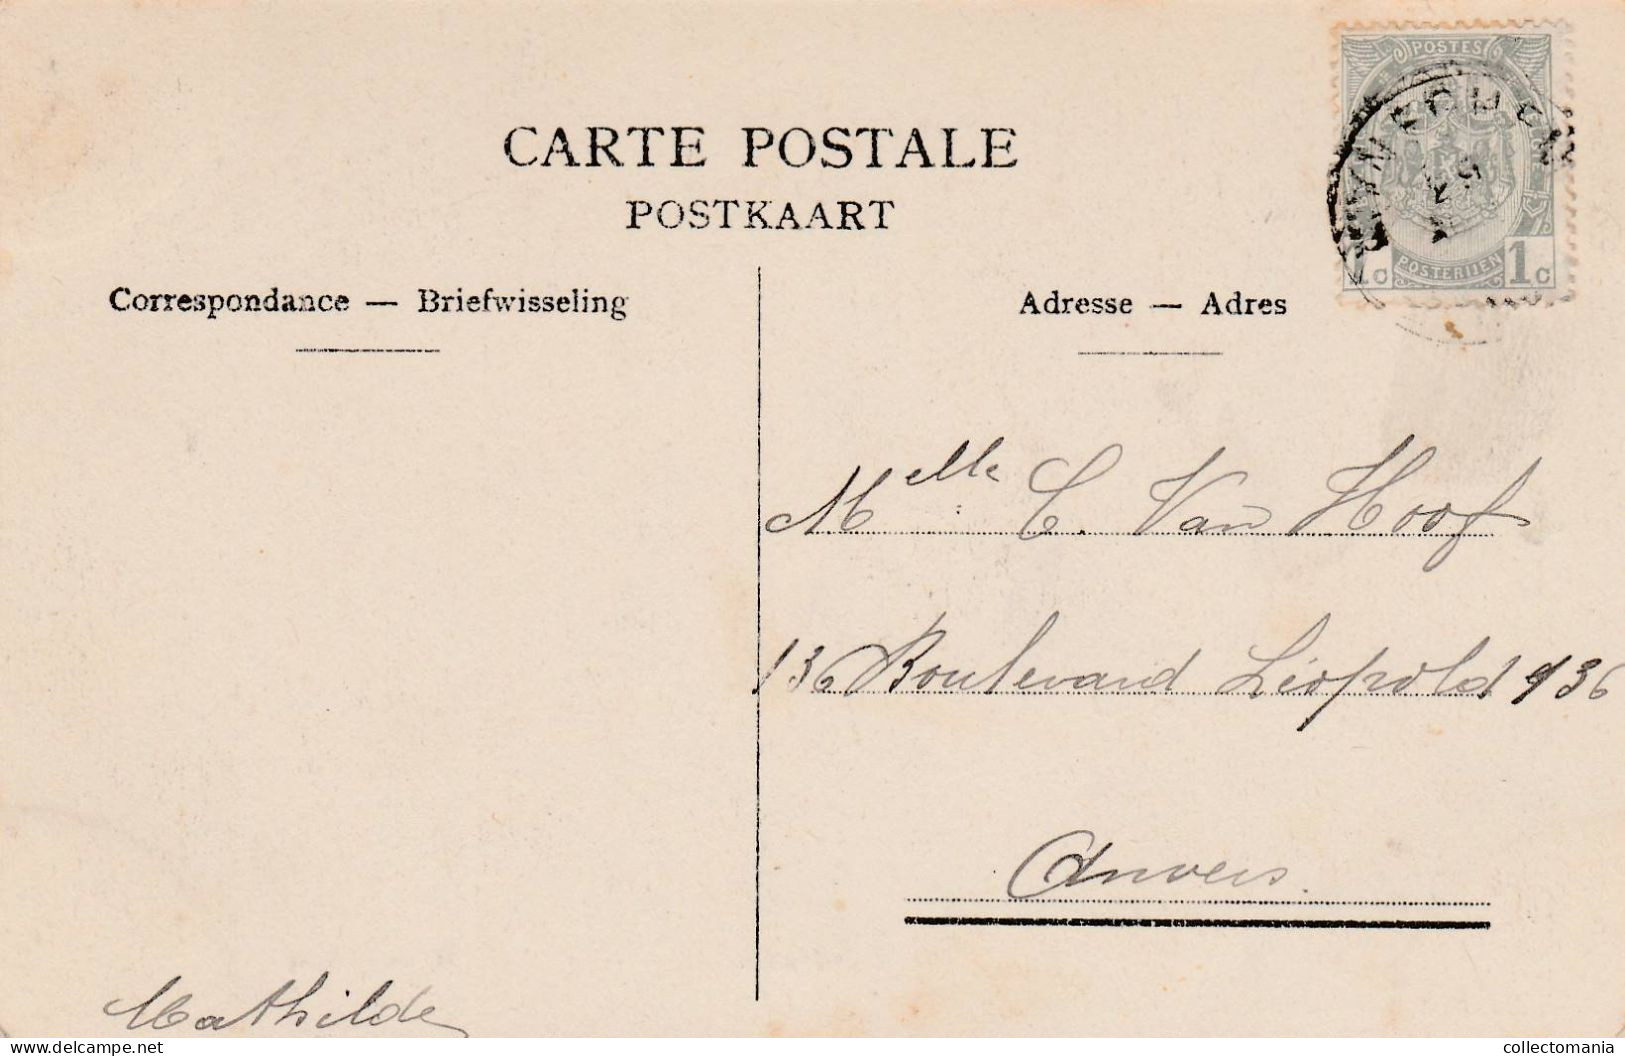 POSTES
POSTERIJEN
1 C 1 C
CARTE POSTALE
POSTKAART
Correspondance — Briefwisseling
Adresse — Adres
Melle C. Van Hoof
136 Boulevard Léopold 136
Anvers.
Mathilde
delcampe.net
collectomania